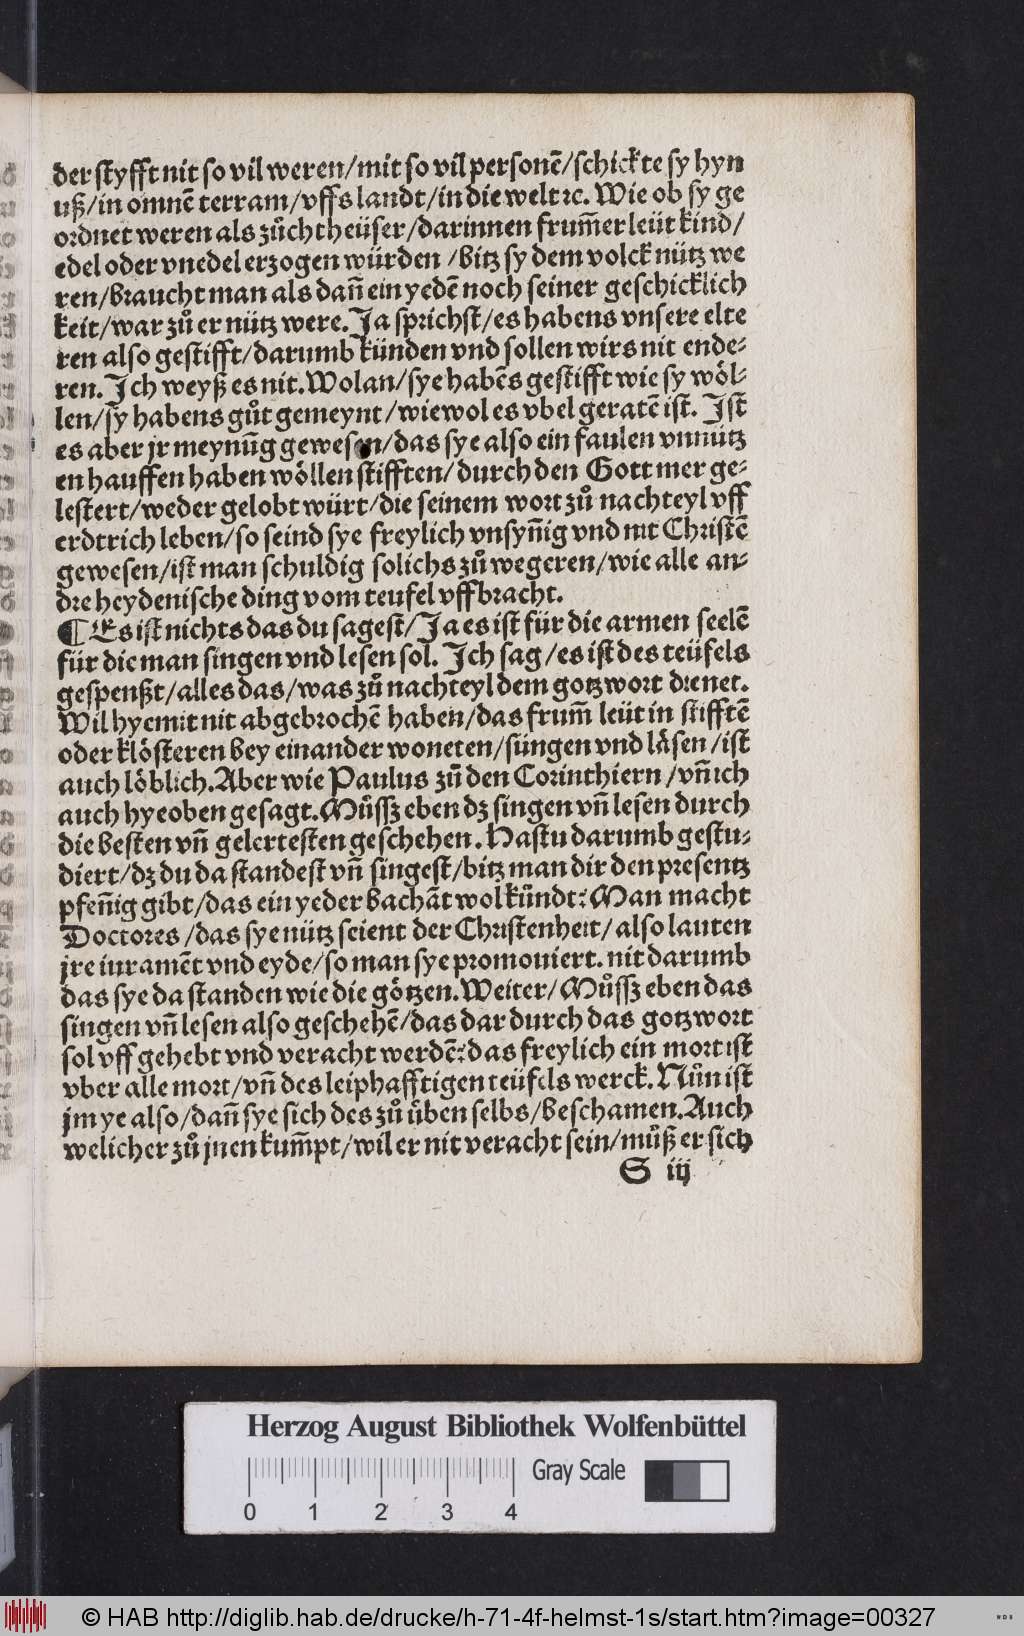 der styfft nit so vil weren/mit so vil personē/schickte sy hyn
uß/in omnē terram/vffs landt/in die welt ⁊c. Wie ob sy ge
ordnet weren als zůchtheüser/darinnen frum̄er leüt kind/
edel oder vnedel erzogen würden /bitz sy dem volck nütz we
ren/braucht man als dan̄ ein yedē noch seiner geschicklich
keit/war zů er nütz were. Ja sprichst/es habens vnsere elte
ren also gestifft/darumb künden vnd sollen wirs nit ende⸗
ren. Ich weyß es nit. Wolan/sye habēs gestifft wie sy wöl⸗
len/sy habens gůt gemeynt/wiewol es vbel geratē ist. Ist
es aber jr meynūg gewesen/das sye also ein faulen vnnütz
en hauffen haben wöllen stifften/durch den Gott mer ge⸗
lestert/weder gelobt würt/die seinem wort zů nachteyl vff
erdtrich leben/so seind sye freylich vnsyn̄ig vnd nit Christē
gewesen/ist man schuldig solichs zů wegeren/wie alle an⸗
dre heydenische ding vom teufel vffbracht.
¶ Es ist nichts das du sagest/Ja es ist für die armen seelē
für die man singen vnd lesen sol. Ich sag/es ist des teüfels
gespenßt/alles das/was zů nachteyl dem gotzwort dienet.
Wil hyemit nit abgebrochē haben/das frum̄ leüt in stifftē
oder klösteren bey einander woneten/süngen vnd läsen/ist
auch löblich. Aber wie Paulus zū den Corinthiern/vn̄ ich
auch hyeoben gesagt. Můssz eben dz singen vn̄ lesen durch
die besten vn̄ gelertesten geschehen. Hastu darumb gestu⸗
diert/dz du da standest vn̄ singest/bitz man dir den presentz
pfen̄ig gibt/das ein yeder bachāt wol kůndt: Man macht
Doctores/das sye nütz seient der Christenheit/also lauten
jre iuramēt vnd eyde/so man sye promouiert. nit darumb
das sye da standen wie die götzen. Weiter/Můssz eben das
singen vn̄ lesen also geschehē/das dardurch das gotzwort
sol vffgehebt vnd veracht werdē: das freylich ein mort ist
vber alle mort/vn̄ des leiphafftigen teüfels werck. Nůn ist
jm ye also/dan̄ sye sich des zů üben selbs/beschamen. Auch
welicher zů jnen kum̄pt/wil er nit veracht sein/můß er sich
S iij
Herzog August Bibliothek Wolfenbüttel
Gray Scale
0 1 2 3 4
© HAB http://diglib.hab.de/drucke/h-71-4f-helmst-1s/start.htm?image=00327